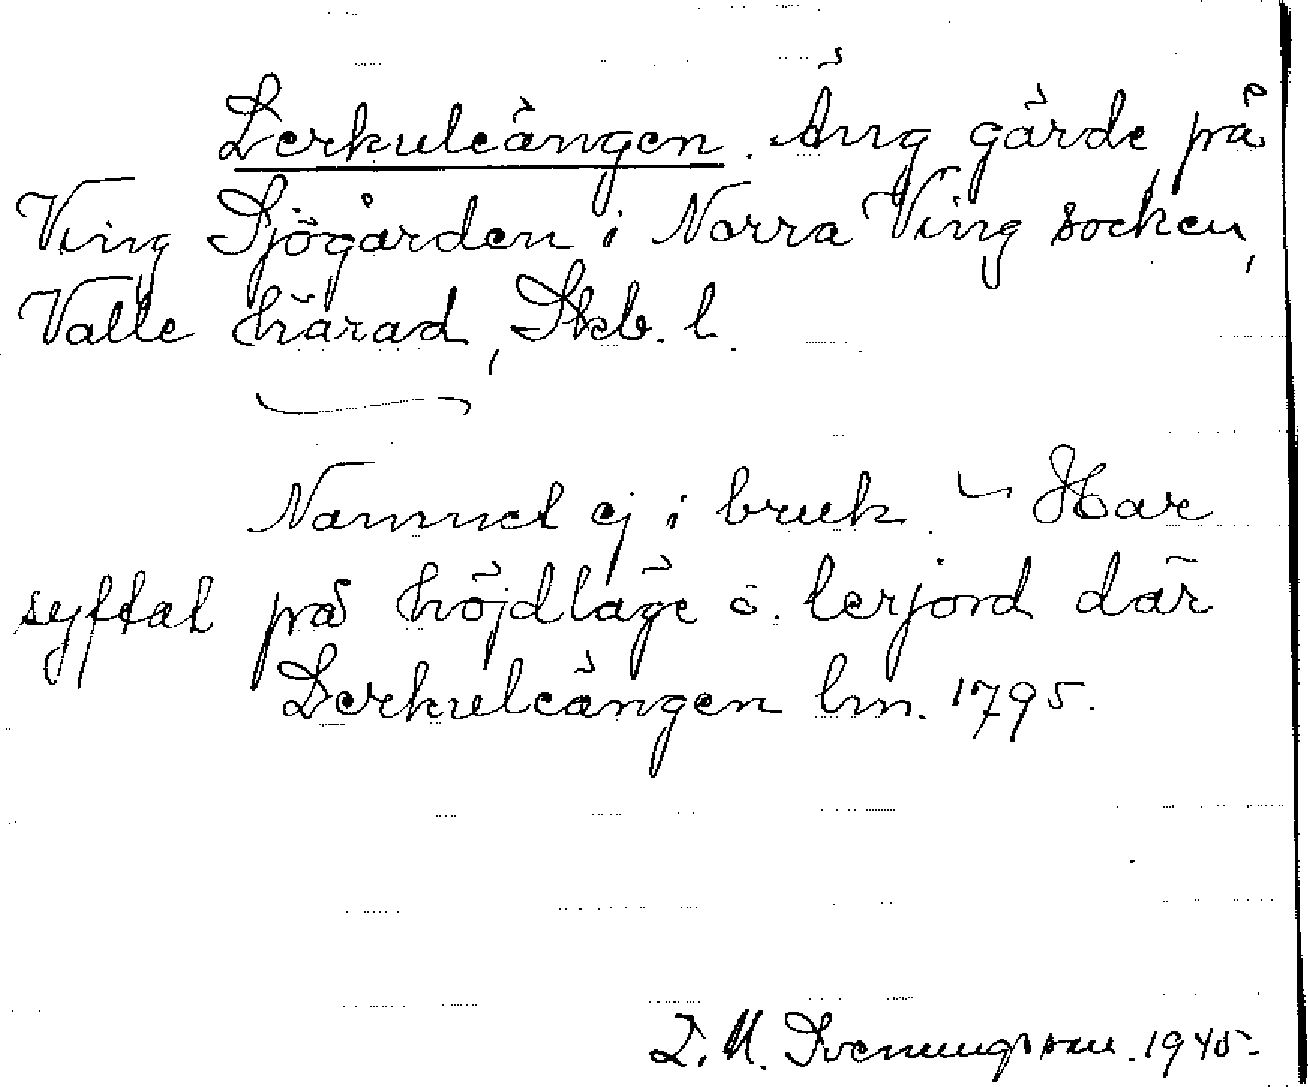 Lerkuleängen. Äng gärde på
Ving Sjögården i Norra Ving socken,
Valle härad, Skb. l.
Namnet ej i bruk. – Har
syftat på höjdläge o. lerjord där
Lerkuleängen lm. 1795.
L. M. Svenungsson. 1945.